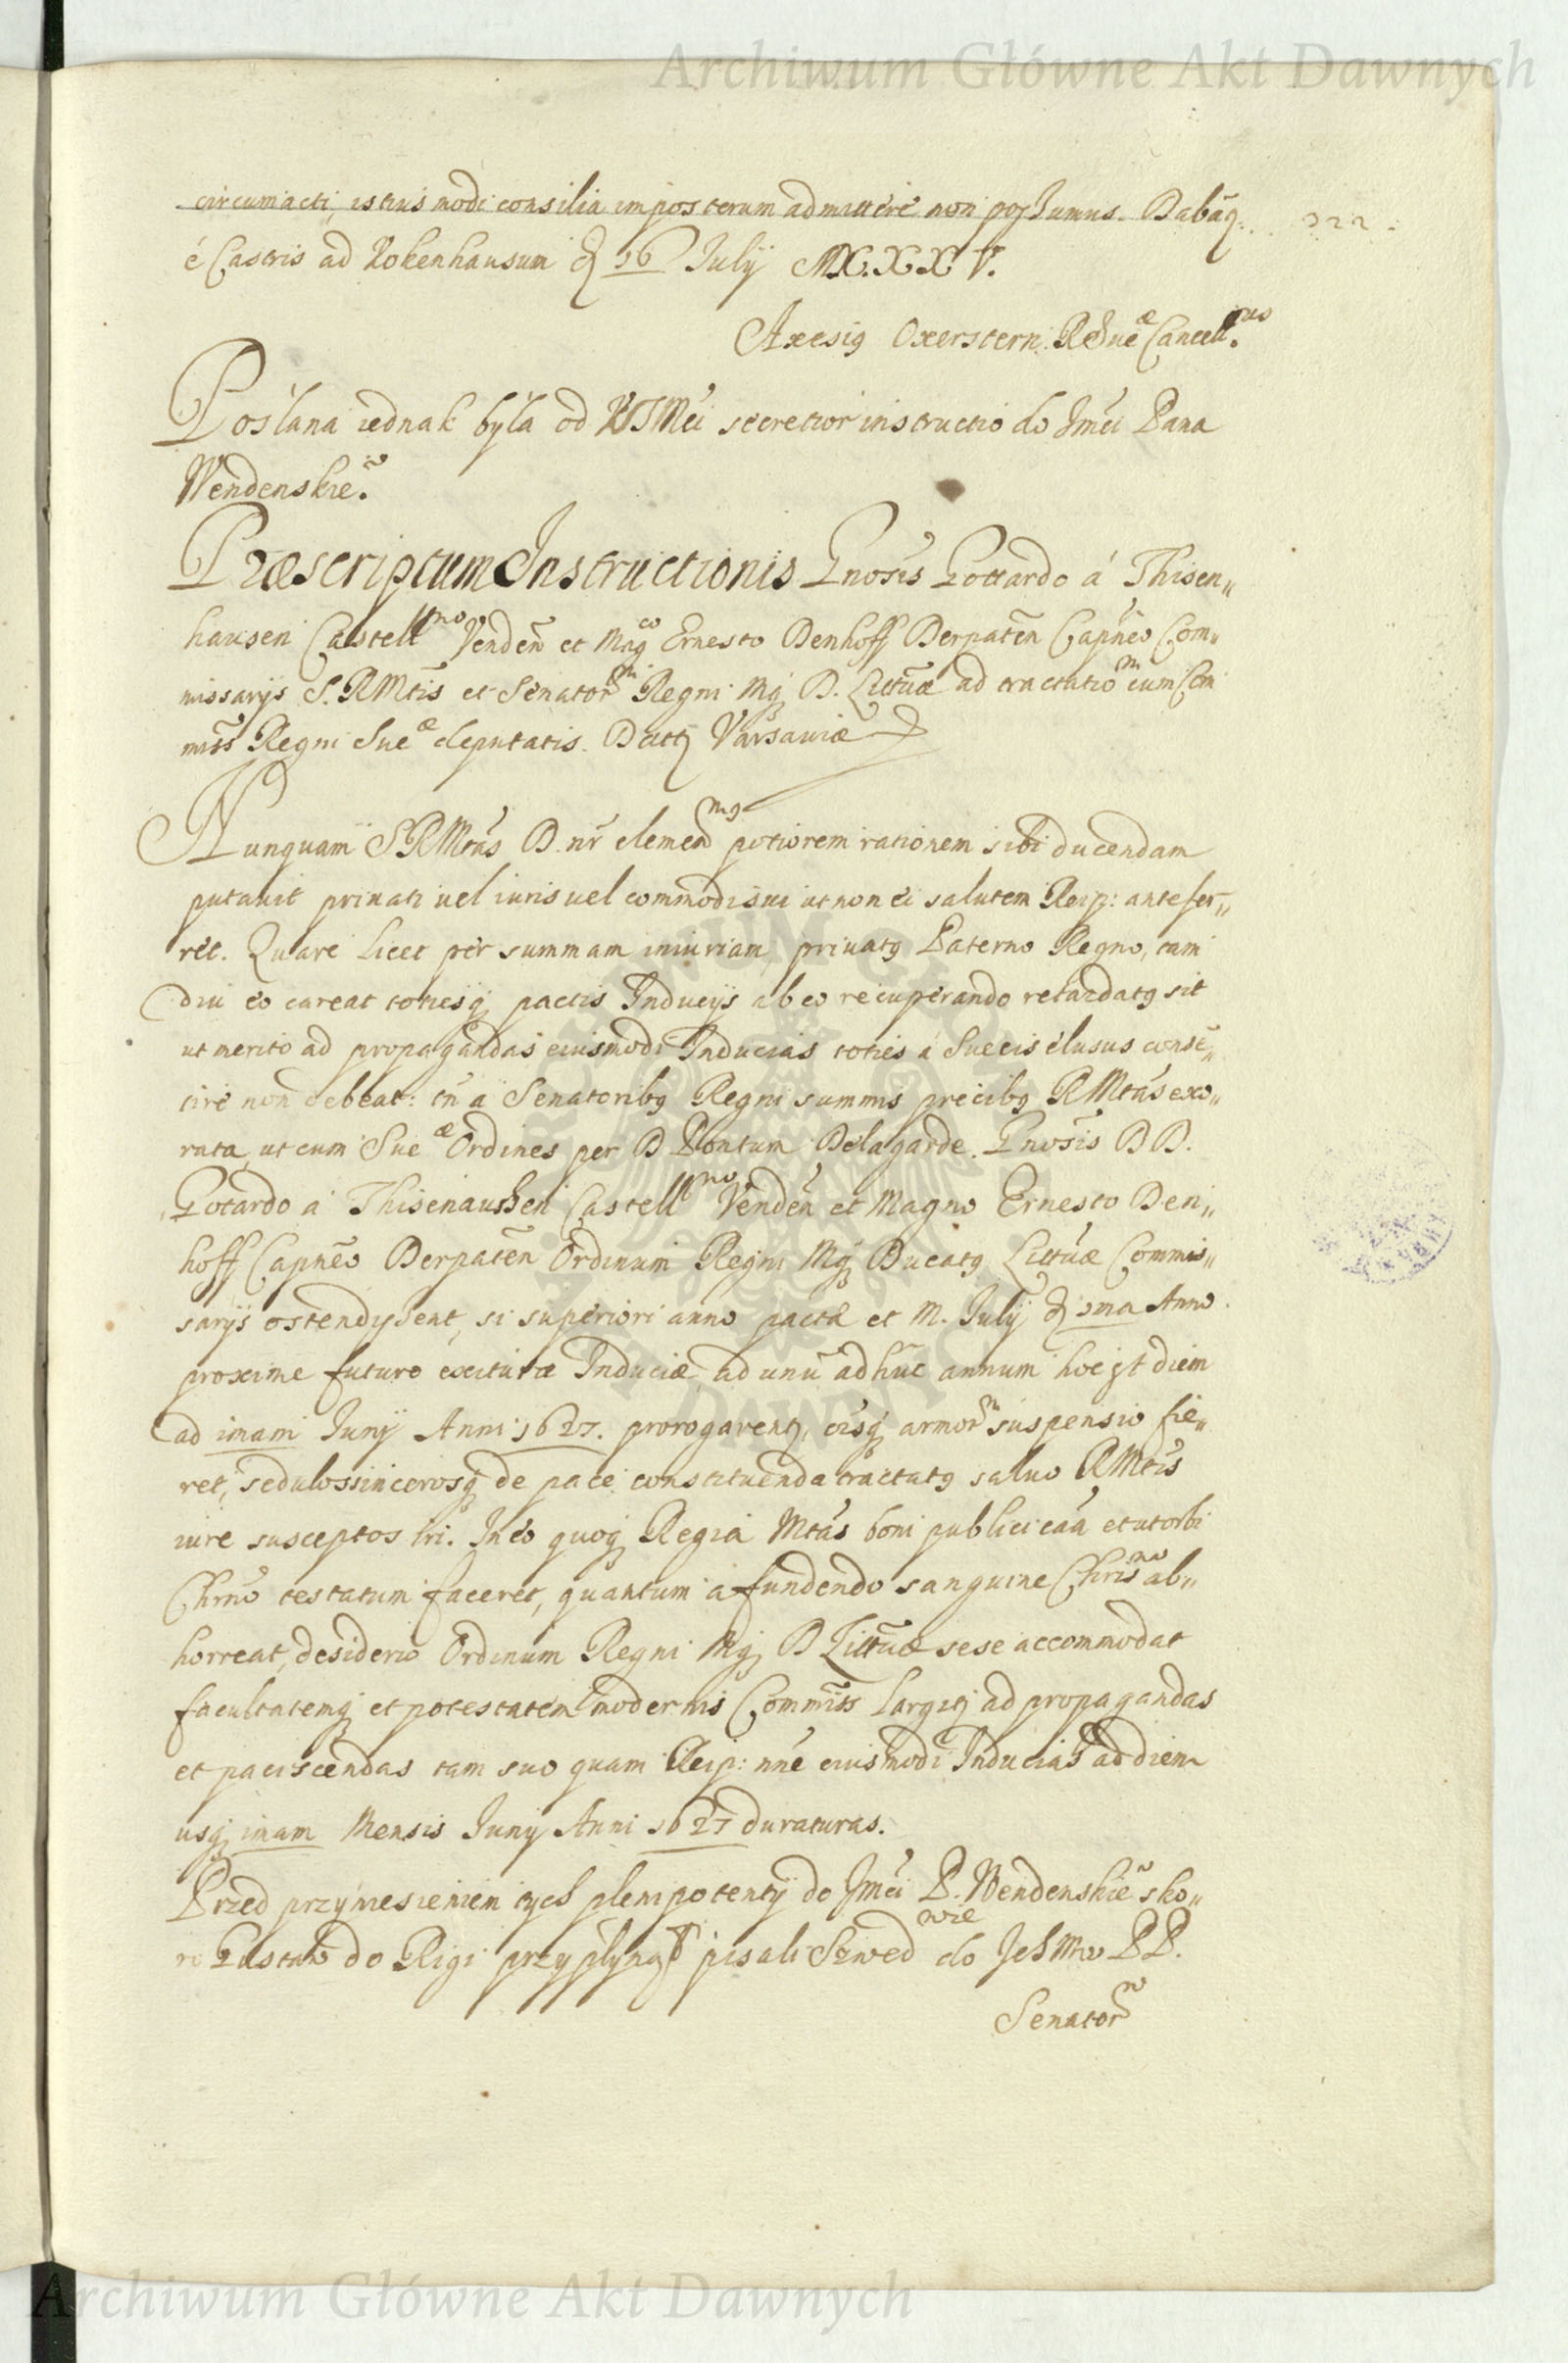 Archiwum Główne Akt Dawnych
circumacti, istius modi consilia imposterum admittere non possumus. Dabãq:. 322.
é Castris ad Kokenhausum d 16 July MDC.XXV.
Axesig Oxerstern. R Sueæ Cancellrius
Posłana iednak była od KJMci secretior instructio do Jmci Pana
Wendenskiẽo.
Præscriptum Instructionis Gnosis Gottardo á Thisen„
hausen Castellno Vendeñ et Magco Ernesto Denhoff Derpateñ Capñeo Com„
missarijs S. RMtis et Senatorm Regni Mq D. Littuæ ad tractatiom cum Com
miss Regni Sueæ deputatis. Datt Varsauiæ
Nunquam SRMtas D. nr clemenmg potiorem rationem sibi ducendam
putauit priuati uel iuris uel commodi sui ut non ei salutem Reip: antefer„
ret. Quare licet per summam iniuriam, priuatg Paterno Regno, tam
diu eo careat totiesq pactis Inducijs ab eo recuperando retardatg sit
ut merito ad propagandas eiusmodi Inducias toties á Suecis élusus consẽ„
tire non debeat: tñ á Senatoribg Regni summis precibg RMtas exo„
rata, ut cum Sueæ Ordines per D Pontum Delagarde. Gnosis DD.
Gotardo á Thisenaussen Castellno Vendeñ et Magno Ernesto Den„
hoff Capñeo Derpateñ Ordinum Regni Mq Ducatg Littuæ Commis„
sarijs ostendissent, si superiori anno pacta et M. July d 1ma Anno
proxime futuro exituræ Induciæ ad unũ adhuc annum hoc jt diem
ad imam Juny Anni 1627. prorogarent, eisq armorm suspensio fie„
ret, sedulos sincerosq de pace constituenda tractatg saluo RMtis
iure susceptos iri. In eo quoq Regia Mtas boni publici cãa et ut orbi
Chrno testatum faceret, quantum á fundendo sanguine Chrisno ab„
horreat, desiderio Ordinum Regni Mq D Littuæ sese accommodat
facultatemq et potestatem modernis Commiss largitj ad propagandas
et paciscendas tam suo quam Reip: nñe eiusmodi Inducias ad diem
usq imam Mensis Juny Anni 1627 duraturas.
Przed przyniesieniem tych plenipotentÿ do Jmci P. Wendenskiẽo sko„
ro Gustaw do Rigi przypłynął pisali Szwedowie do Jch Mw PP.
Senatorw
Archiwum Główne Akt Dawnych